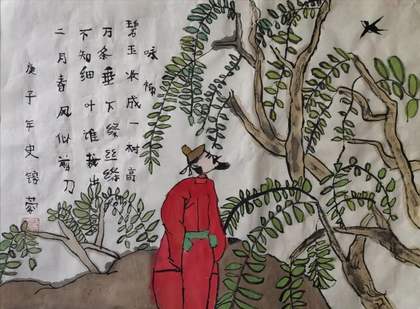 咏柳
碧玉妆成一树高
万条垂下绿丝绦
不知细叶谁裁出
二月春风似剪刀
庚子年史